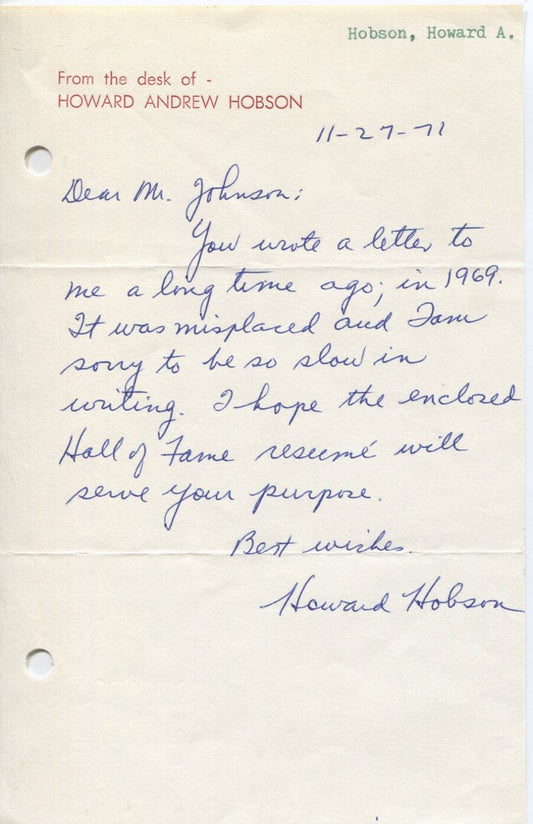 Hobson, Howard A.
From the desk of -
HOWARD ANDREW HOBSON
11-27-71
Dear Mr. Johnson:
You wrote a letter to
me a long time ago; in 1969.
It was misplaced and I am
sorry to be so slow in
writing. I hope the enclosed
Hall of Fame resumé will
serve your purpose.
Best wishes.
Howard Hobson